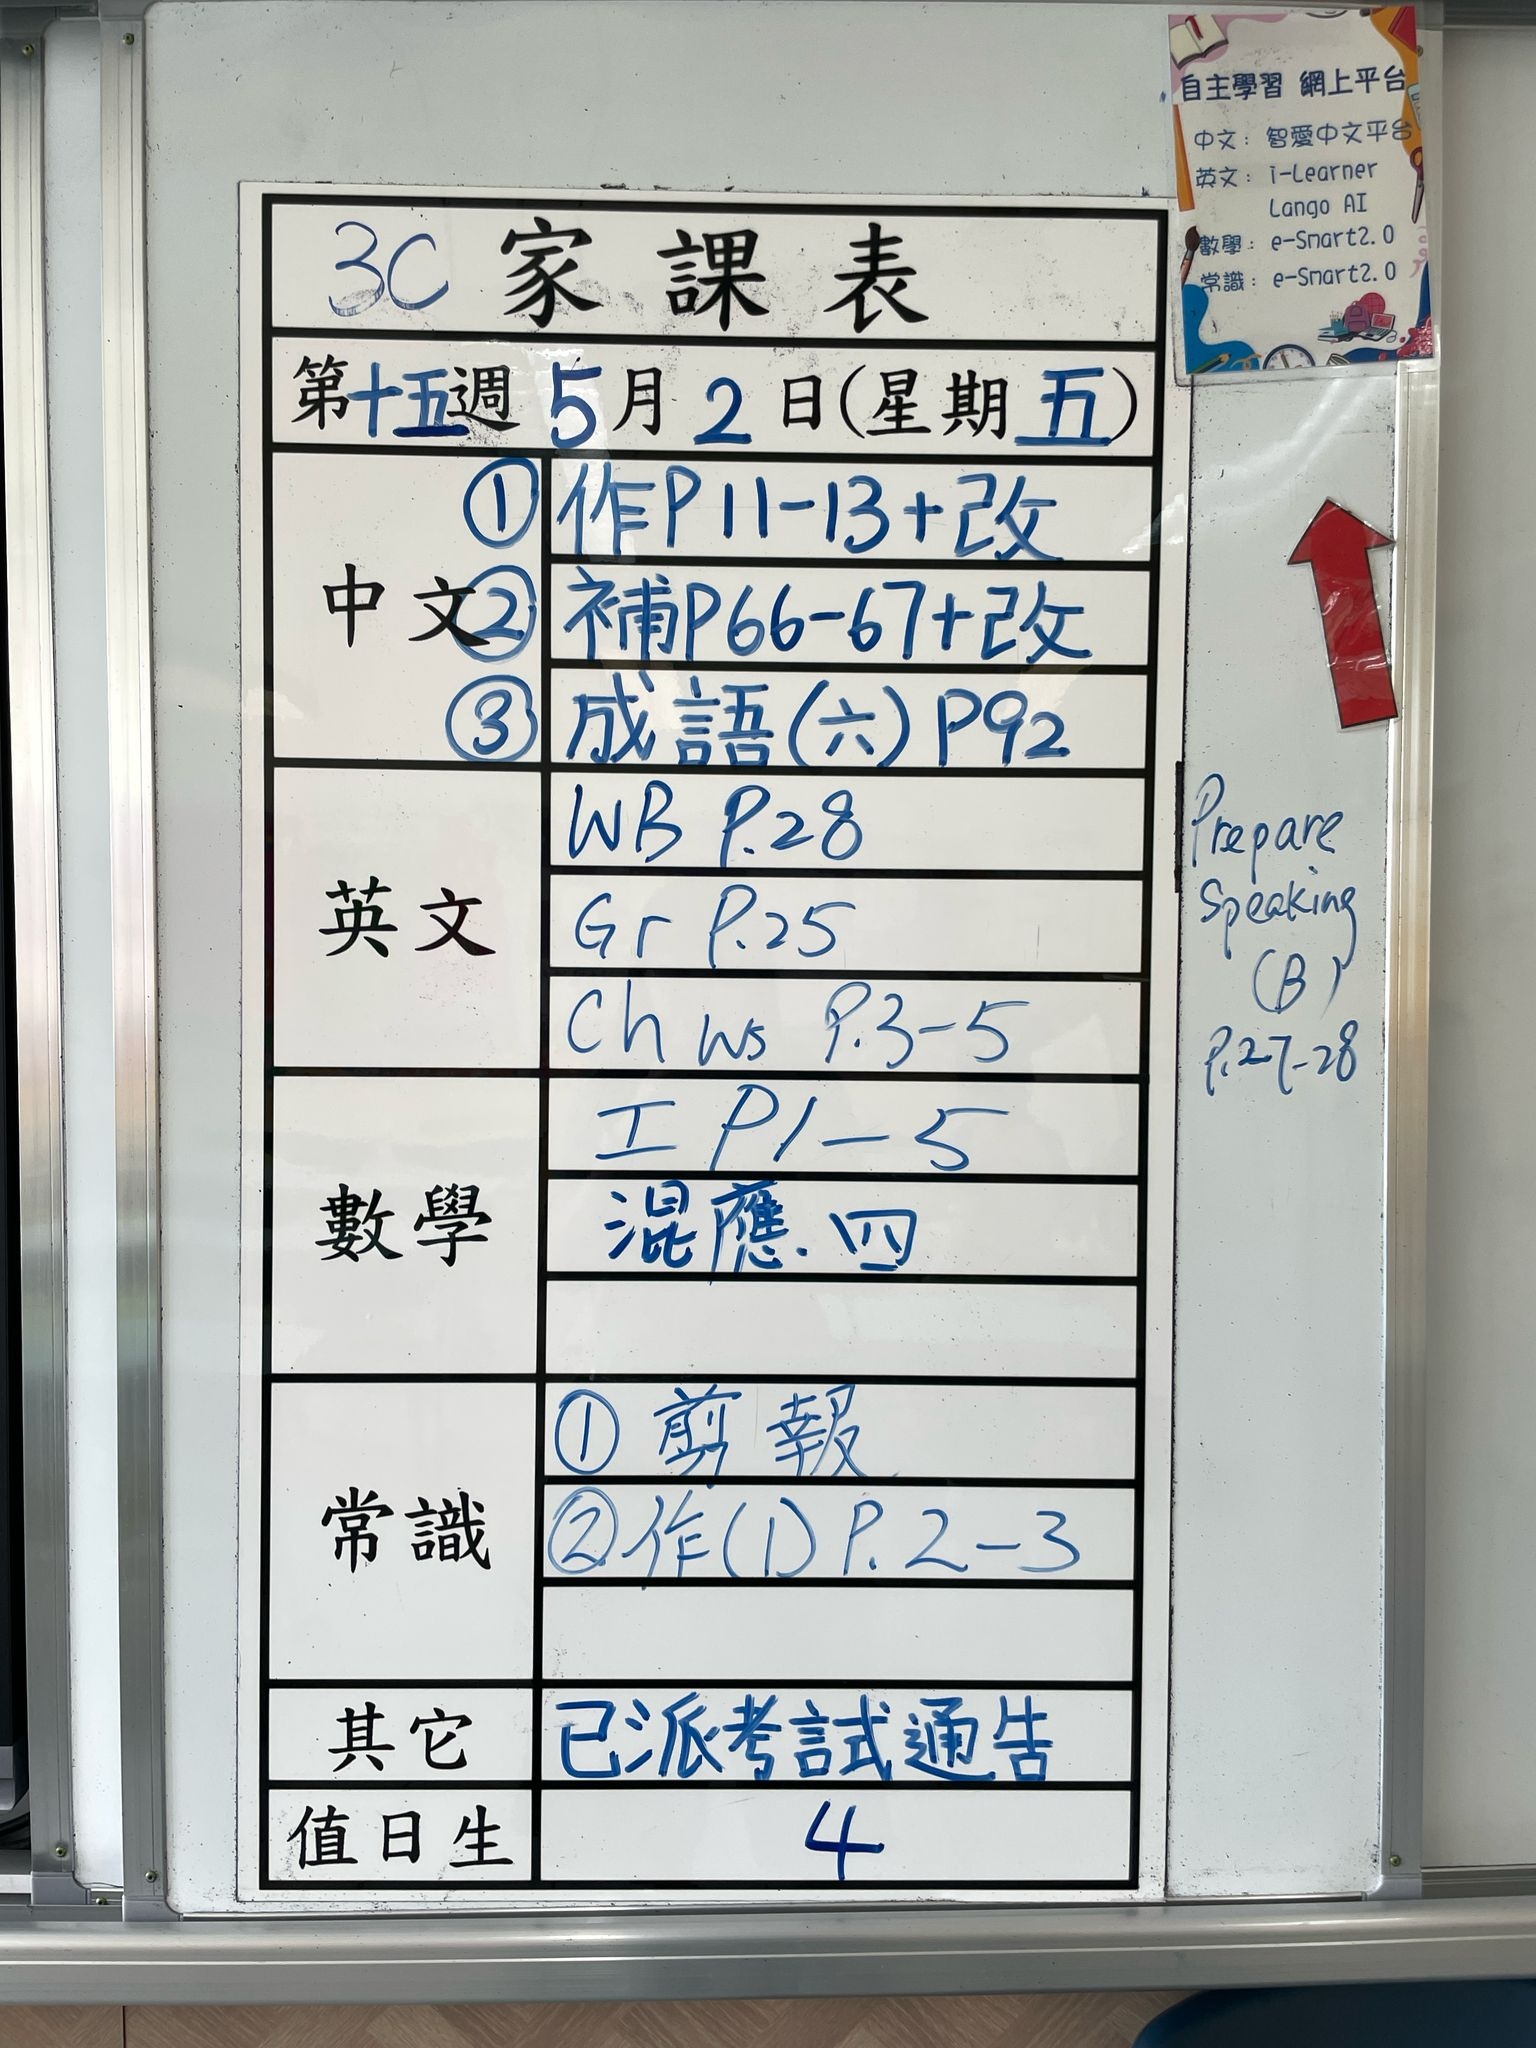 自主學習 網上平台
中文：智愛中文平台
英文：i-Learner
Lango AI
數學：e-Smart2.0
常識：e-Smart2.0
3C 家課表
第十五週 5月2日(星期五)
中文
① 作P11-13+改
② 補P66-67+改
③ 成語(六)P92
英文
WB P.28
Gr P.25
Ch WS P.3-5
Prepare
Speaking
(B)
P.27-28
數學
工 P1-5
混應.四
常識
① 剪報
② 作(1)P.2-3
其它
已派考試通告
值日生
4